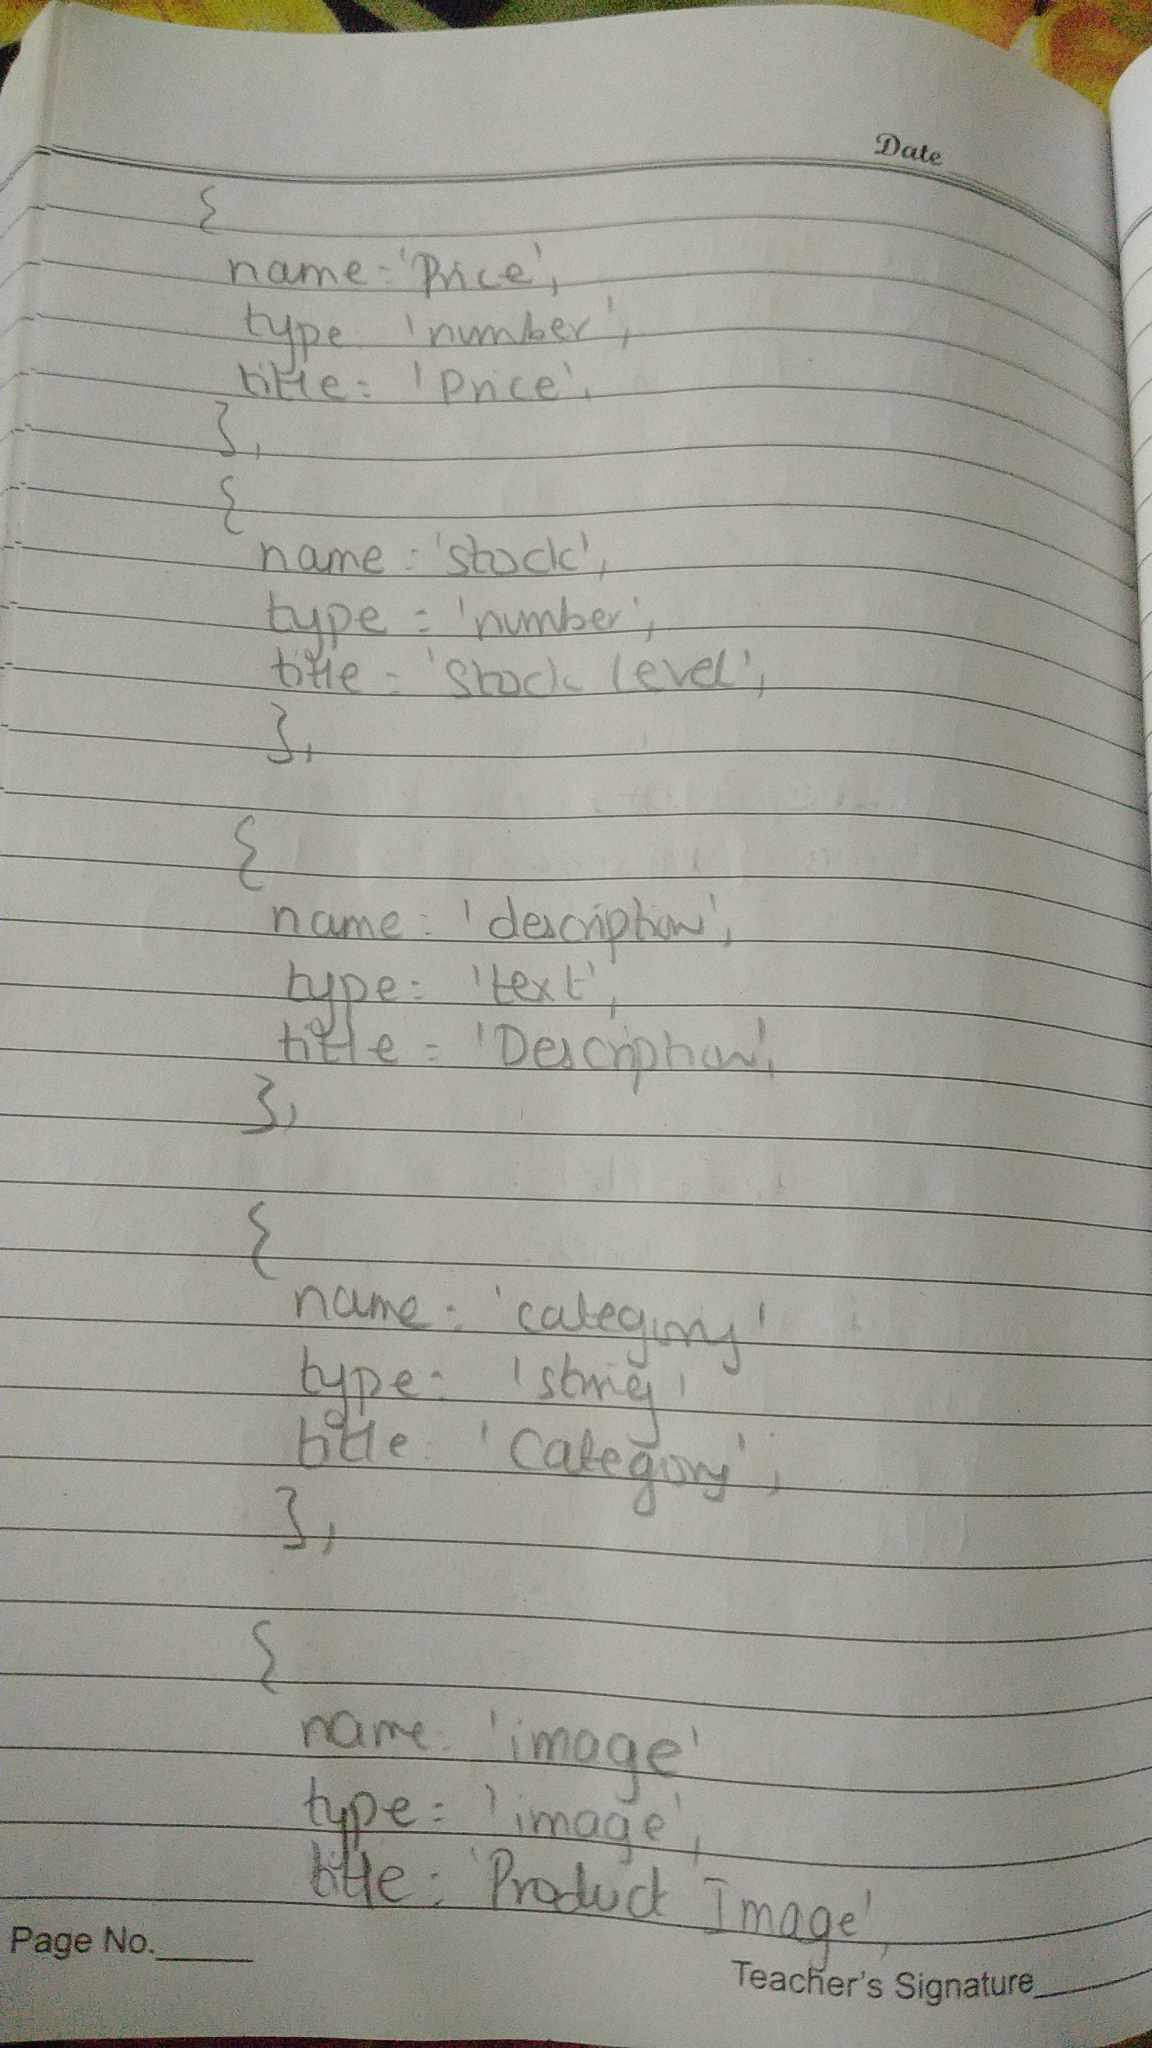 Date
{
name: 'Price',
type 'number',
title: 'Price',
},
{
name: 'stock',
type: 'number',
title: 'Stock level',
},
{
name: 'description',
type: 'text',
title: 'Description',
},
{
name: 'category'
type: 'string'
title: 'Category',
},
{
name: 'image'
type: 'image',
title: 'Product Image',
Page No.
Teacher's Signature